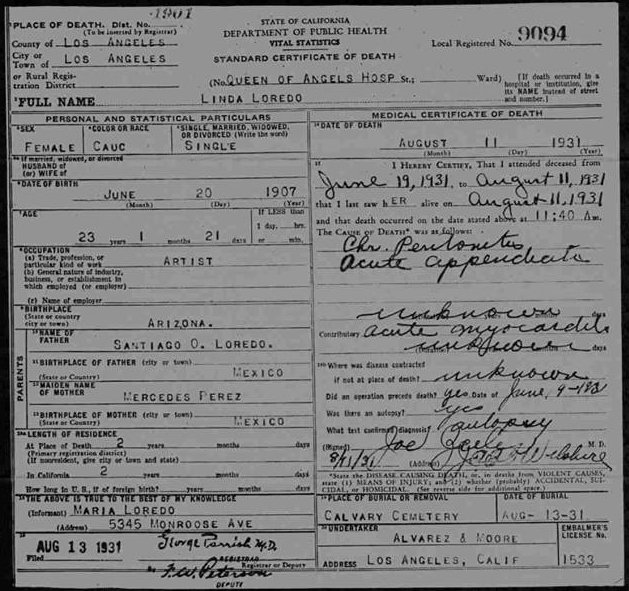 1901
PLACE OF DEATH. Dist. No.
(To be inserted by Registrar)
County of LOS ANGELES
City or
Town of LOS ANGELES
or Rural Regis-
tration District
STATE OF CALIFORNIA
DEPARTMENT OF PUBLIC HEALTH
VITAL STATISTICS
STANDARD CERTIFICATE OF DEATH
Local Registered No. 9094
(No. QUEEN OF ANGELS HOSP St.; Ward)
[If death occurred in a
hospital or institution, give
its NAME instead of street
and number.]
FULL NAME LINDA LOREDO
PERSONAL AND STATISTICAL PARTICULARS
SEX
FEMALE
COLOR OR RACE
CAUC
SINGLE, MARRIED, WIDOWED,
OR DIVORCED (Write the word)
SINGLE
If married, widowed, or divorced
HUSBAND of
(or) WIFE of
DATE OF BIRTH
JUNE 20 1907
(Month) (Day) (Year)
AGE
23 years 1 months 21 days
If LESS than
1 day, hrs.
or min.
OCCUPATION
(a) Trade, profession, or
particular kind of work ARTIST
(b) General nature of industry,
business, or establishment in
which employed (or employer)
(c) Name of employer
BIRTHPLACE
(State or country)
city or town) ARIZONA.
PARENTS
NAME OF
FATHER SANTIAGO O. LOREDO.
BIRTHPLACE OF FATHER (city or town)
(State or Country) MEXICO
MAIDEN NAME
OF MOTHER MERCEDES PEREZ
BIRTHPLACE OF MOTHER (city or town)
(State or country) MEXICO
LENGTH OF RESIDENCE
At Place of Death 2 years months days
(Primary registration district)
(If nonresident, give city or town and state)
In California 2 years months days
How long in U. S., if of foreign birth? years months days
THE ABOVE IS TRUE TO THE BEST OF MY KNOWLEDGE
(Informant) MARIA LOREDO
(Address) 5345 MONROOSE AVE
AUG 13 1931
Filed
George Parrish M.D.
REGISTRAR
Registrar or Deputy
By F.W. Peterson
DEPUTY
MEDICAL CERTIFICATE OF DEATH
DATE OF DEATH
AUGUST 11 1931
(Month) (Day) (Year)
I HEREBY CERTIFY, That I attended deceased from
June 19, 1931, to August 11, 1931
that I last saw hER alive on August 11, 1931
and that death occurred on the date stated above at 11:40 Am.
The CAUSE OF DEATH* was as follows:
Chr. Peritonitis
Acute appendicitis
unknown days
Contributory acute myocarditis
(Duration) unknown days
Where was disease contracted
if not at place of death? unknown
Did an operation precede death? yes Date of June, 9-1931
Was there an autopsy? yes
What test confirmed diagnosis? autopsy
(Signed) Joe M. D.
8/11/31 (Address) Wilshire
*State the DISEASE CAUSING DEATH, or, in deaths from VIOLENT CAUSES,
state (1) MEANS OF INJURY; and (2) whether (probably) ACCIDENTAL, SUI-
CIDAL, or HOMICIDAL. (See reverse side for additional space.)
PLACE OF BURIAL OR REMOVAL
CALVARY CEMETERY
DATE OF BURIAL
AUG-13-31
UNDERTAKER
ALVAREZ & MOORE
ADDRESS LOS ANGELES, CALIF
EMBALMER'S
LICENSE No.
1533